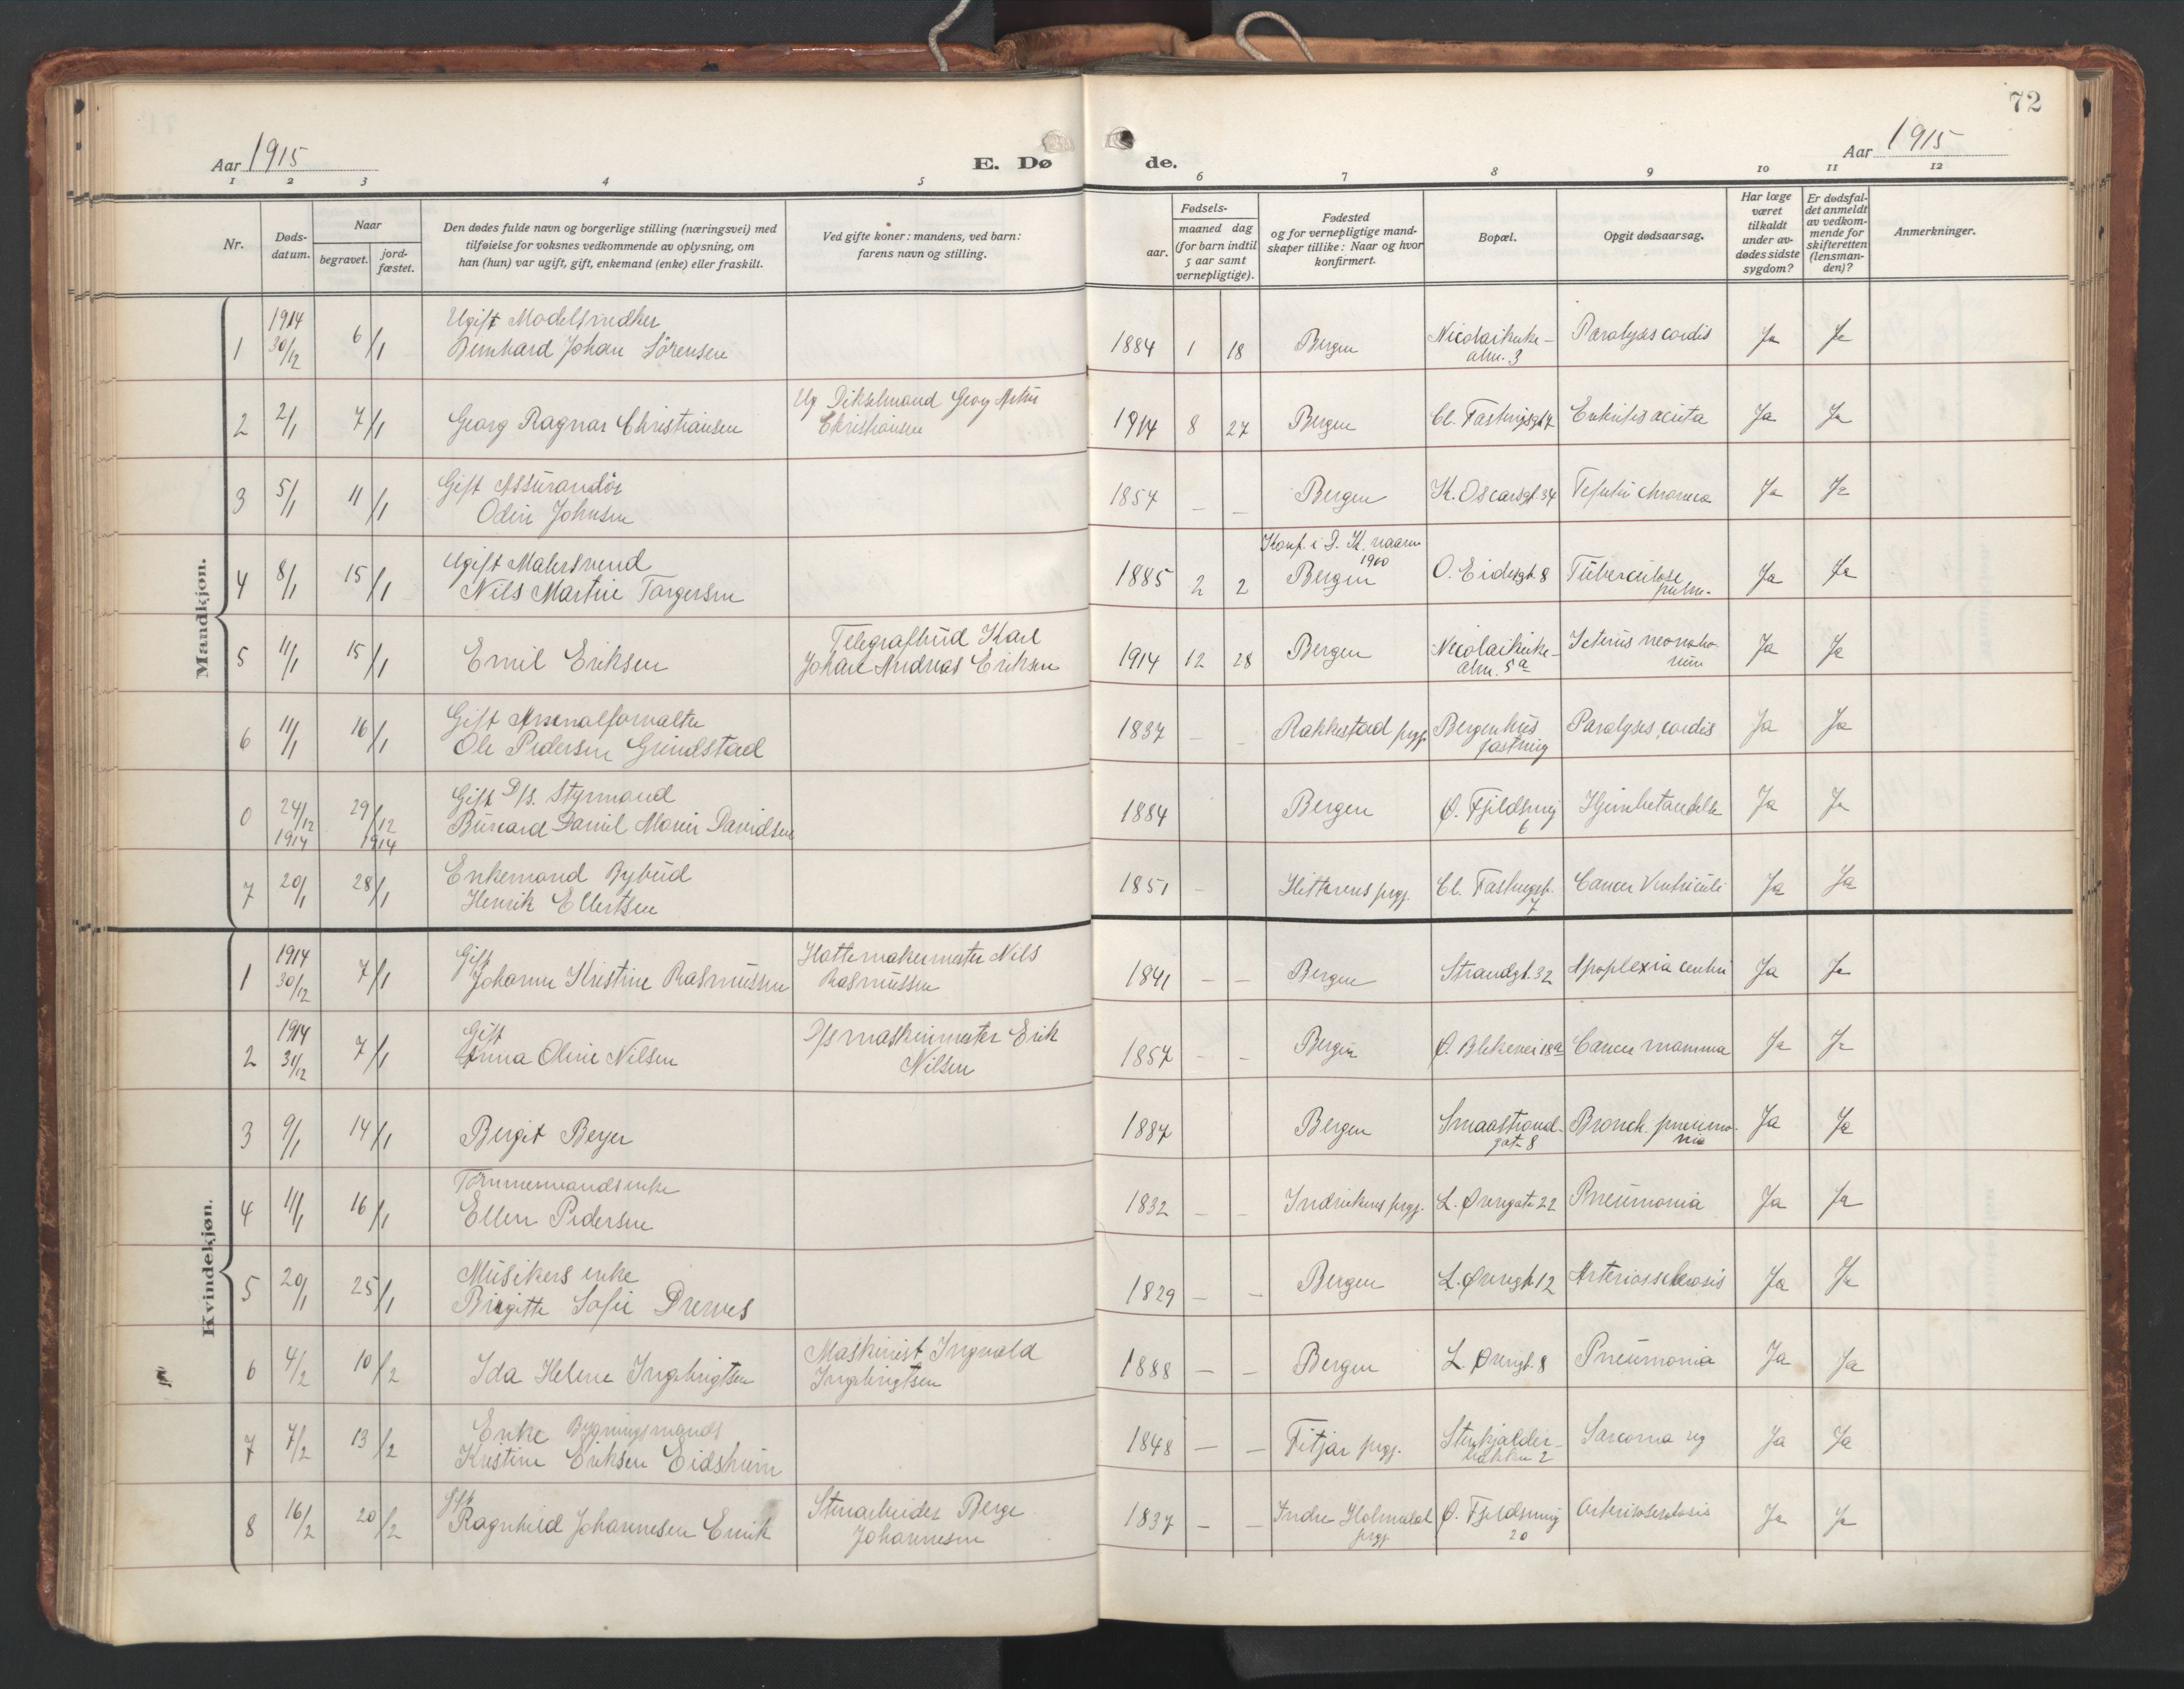 72
Aar 1915
E. Dø
de.
Aar 1915
1 2 3 4 5 6 7 8 9 10 11 12
Nr.
Døds-
datum.
Naar
begravet.
jord-
fæstet.
Den dødes fulde navn og borgerlige stilling (næringsvei) med
tilføielse for voksnes vedkommende av oplysning, om
han (hun) var ugift, gift, enkemand (enke) eller fraskilt.
Ved gifte koner: mandens, ved barn:
farens navn og stilling.
Fødsels-
aar.
maaned dag
(for barn indtil
5 aar samt
vernepligtige).
Fødested
og for vernepligtige mand-
skaper tillike: Naar og hvor
konfirmert.
Bopæl.
Opgit dødsaarsag.
Har læge
været
tilkaldt
under av-
dødes sidste
sygdom?
Er dødsfal-
det anmeldt
av vedkom-
mende for
skifteretten
(lensman-
den)?
Anmerkninger.
Mandkjøn.
1 1914 30/12 6/1 Ugift Modelsnedker
Bernhard Johan Sörensen 1884 1 18 Bergen Nicolaikirke-
alm. 3 Paralysis cordis Ja Ja
2 2/1 7/1 Georg Ragnar Christiansen Ug Georg
Christiansen 1914 8 27 Bergen Cl. Fastingsgt 7 Enteritis acuta Ja Ja
3 5/1 11/1 Gift Assurandör
Odin Johnsen 1854 – – Bergen K. Oscarsgt. 34 chronica Ja Ja
4 8/1 15/1 Ugift Malersvend
Nils Martin Torgersen 1885 2 2 Konf. i D. K. vaaren
1900
Bergen O. Eidesgt. 8 Tuberculose
pulm. Ja Ja
5 11/1 15/1 Emil Eriksen Telegrafbud Karl
Johan Andreas Eriksen 1914 12 28 Bergen Nicolaikirke-
alm. 5a Icterus neonato-
rum Ja Ja
6 11/1 16/1 Gift Arsenalforvalter
Ole Pedersen Grindstad 1837 – – Rakkestad prgj. Bergenhus
fæstning Paralysis cordis Ja Ja
0 24/12 1914 29/12 1914 Gift D/s. Styrmand
Burchard Daniel Davidsen 1884 Bergen Ø. Fjeldsmug
6 Hjernebetændelse Ja Ja
7 20/1 28/1 Enkemand Bybud
Henrik Ellertsen 1851 – Hitterens prgj. Cl. Fastingsgt.
7 Cancer Ventriculi Ja Ja
Kvindekjøn.
1 1914 30/12 7/1 Gift
Johanne Kristine Rasmussen Hattemakermester Nils
Rasmussen 1841 – – Bergen Strandgt. 32 Apoplexia cerebri Ja Ja
2 1914 31/12 7/1 Gift
Anna Oline Nilsen D/s maskinmester Erik
Nilsen 1857 – – Bergen Ø. Blekevei 18a Cancer mamma Ja Ja
3 9/1 14/1 Bergit Beyer 1887 Bergen Smaastrand-
gate 8 Bronch. pneumo-
nia Ja Ja
4 11/1 16/1 Tömmermands enke
Ellen Pedersen 1832 – – Indvikens prgj. L. Øvregate 22 Pneumonia Ja Ja
5 20/1 25/1 Musikers enke
Birgitte Sofie Drewes 1829 – – Bergen L. Øvregt. 12 Arteriossclerosis Ja Ja
6 4/2 10/2 Ida Helene Ingebrigtsen Maskinist Ingvald
Ingebrigtsen 1888 – – Bergen L. Øvregt. 8 Pneumonia Ja Ja
7 7/2 13/2 Enke Bygningsmands
Kristine Eriksen Eidsheim 1848 – – Fitjar prgj. Stenkjælder-
bakken 2 Sarcoma Ja Ja
8 16/2 20/2 Gift
Ragnhild Johannesen Stenarbeider Berge
Johannesen 1837 – – Indre Holmedal
prgj. Ø. Fjeldsmug
20 Arteriosclerosis Ja Ja